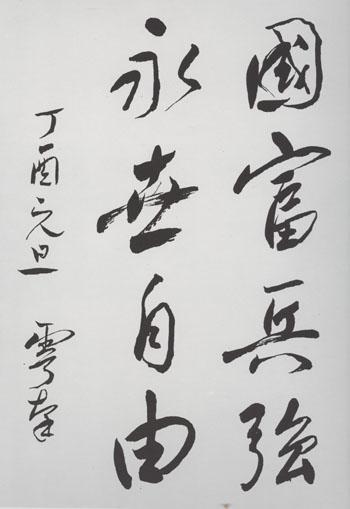 國富兵強
永世自由
丁酉元旦 雩南